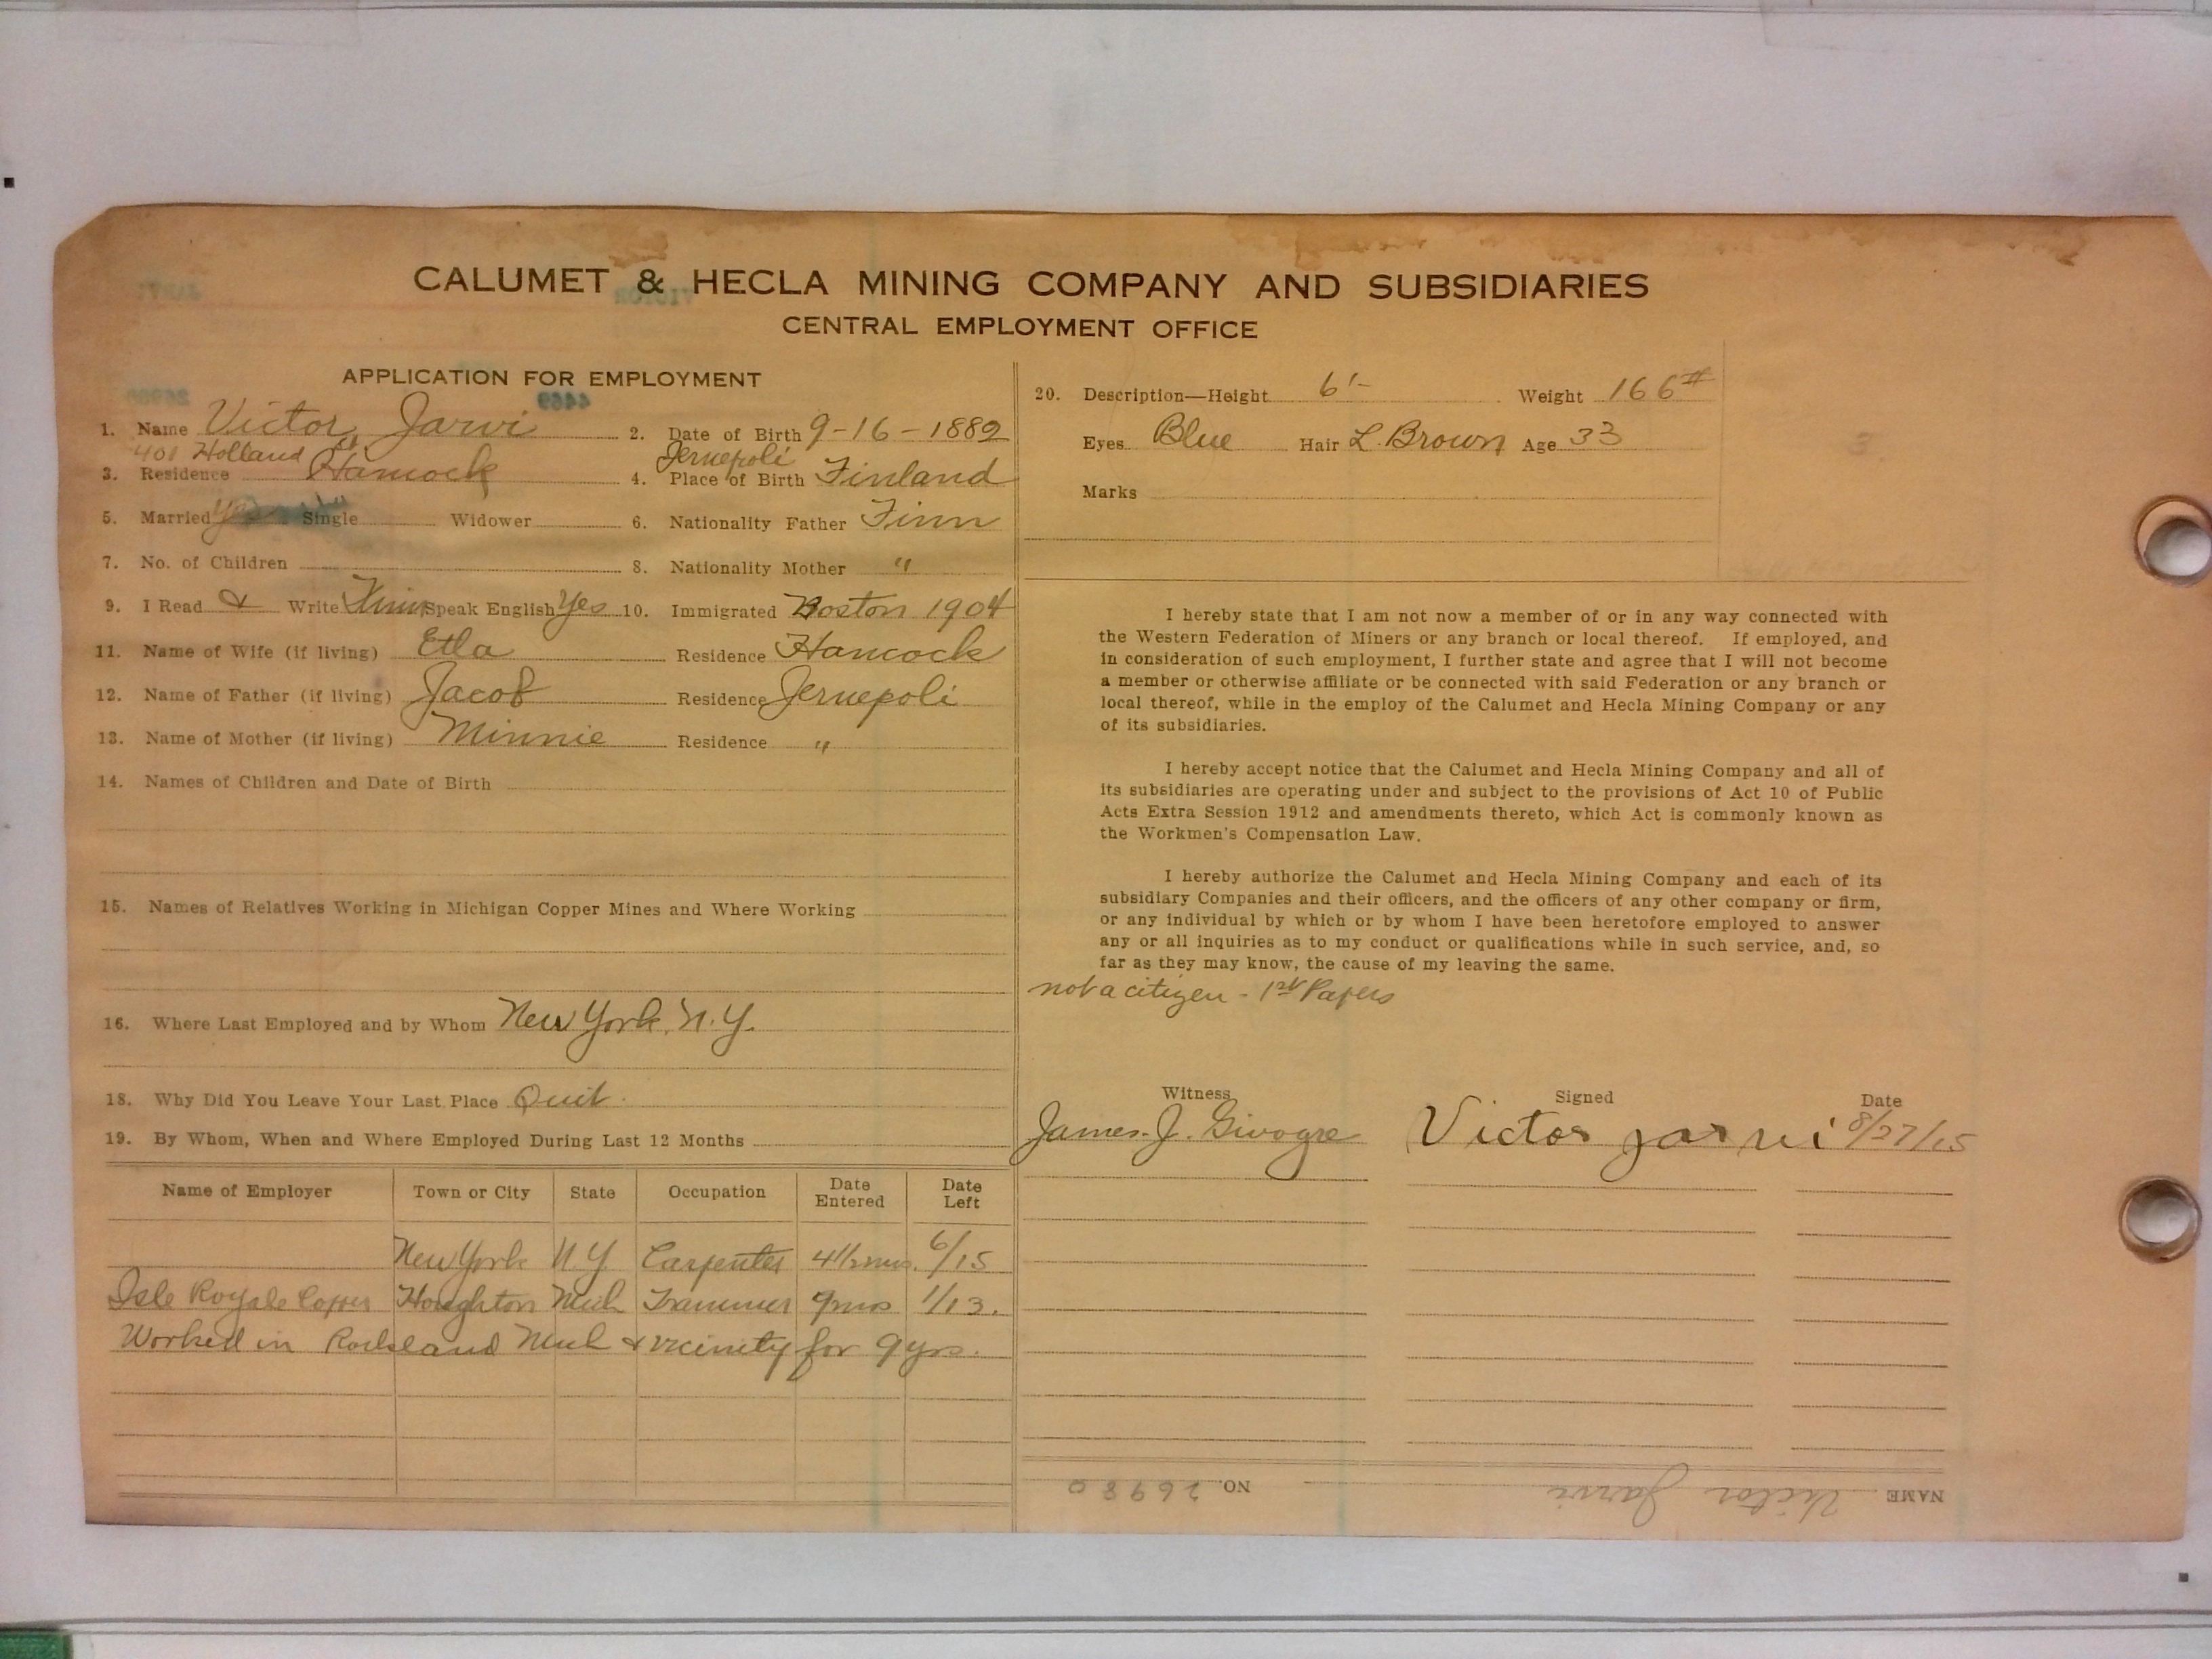 CALUMET & HECLA MINING COMPANY AND SUBSIDIARIES
CENTRAL EMPLOYMENT OFFICE
APPLICATION FOR EMPLOYMENT
1. Name Victor Jarvi 2. Date of Birth 9-16-1882
401 Holland St Jernepoli
3. Residence Hancock 4. Place of Birth Finland
5. Married Yes Single Widower 6. Nationality Father Finn
7. No. of Children 8. Nationality Mother "
9. I Read & Write Finn Speak English Yes 10. Immigrated Boston 1904
11. Name of Wife (if living) Etla Residence Hancock
12. Name of Father (if living) Jacob Residence Jernepoli
13. Name of Mother (if living) Minnie Residence "
14. Names of Children and Date of Birth
15. Names of Relatives Working in Michigan Copper Mines and Where Working
16. Where Last Employed and by Whom New York, N.Y.
18. Why Did You Leave Your Last Place Quit.
19. By Whom, When and Where Employed During Last 12 Months
Name of Employer Town or City State Occupation Date Entered Date Left
New York N.Y. Carpenter 4 1/2 mos. 6/15
Isle Royale Copper Houghton Mich Trammer 9 mos 1/13.
Worked in Rockland Mich & vicinity for 9 yrs.
20. Description—Height 6'- Weight 166#
Eyes Blue Hair L. Brown Age 33
Marks
I hereby state that I am not now a member of or in any way connected with
the Western Federation of Miners or any branch or local thereof. If employed, and
in consideration of such employment, I further state and agree that I will not become
a member or otherwise affiliate or be connected with said Federation or any branch or
local thereof, while in the employ of the Calumet and Hecla Mining Company or any
of its subsidiaries.
I hereby accept notice that the Calumet and Hecla Mining Company and all of
its subsidiaries are operating under and subject to the provisions of Act 10 of Public
Acts Extra Session 1912 and amendments thereto, which Act is commonly known as
the Workmen's Compensation Law.
I hereby authorize the Calumet and Hecla Mining Company and each of its
subsidiary Companies and their officers, and the officers of any other company or firm,
or any individual by which or by whom I have been heretofore employed to answer
any or all inquiries as to my conduct or qualifications while in such service, and, so
far as they may know, the cause of my leaving the same.
not a citizen - 1st Papers
Witness Signed Date
James J. Givogre Victor Jarvi 8/27/15
NAME Victor Jarvi NO. 26980